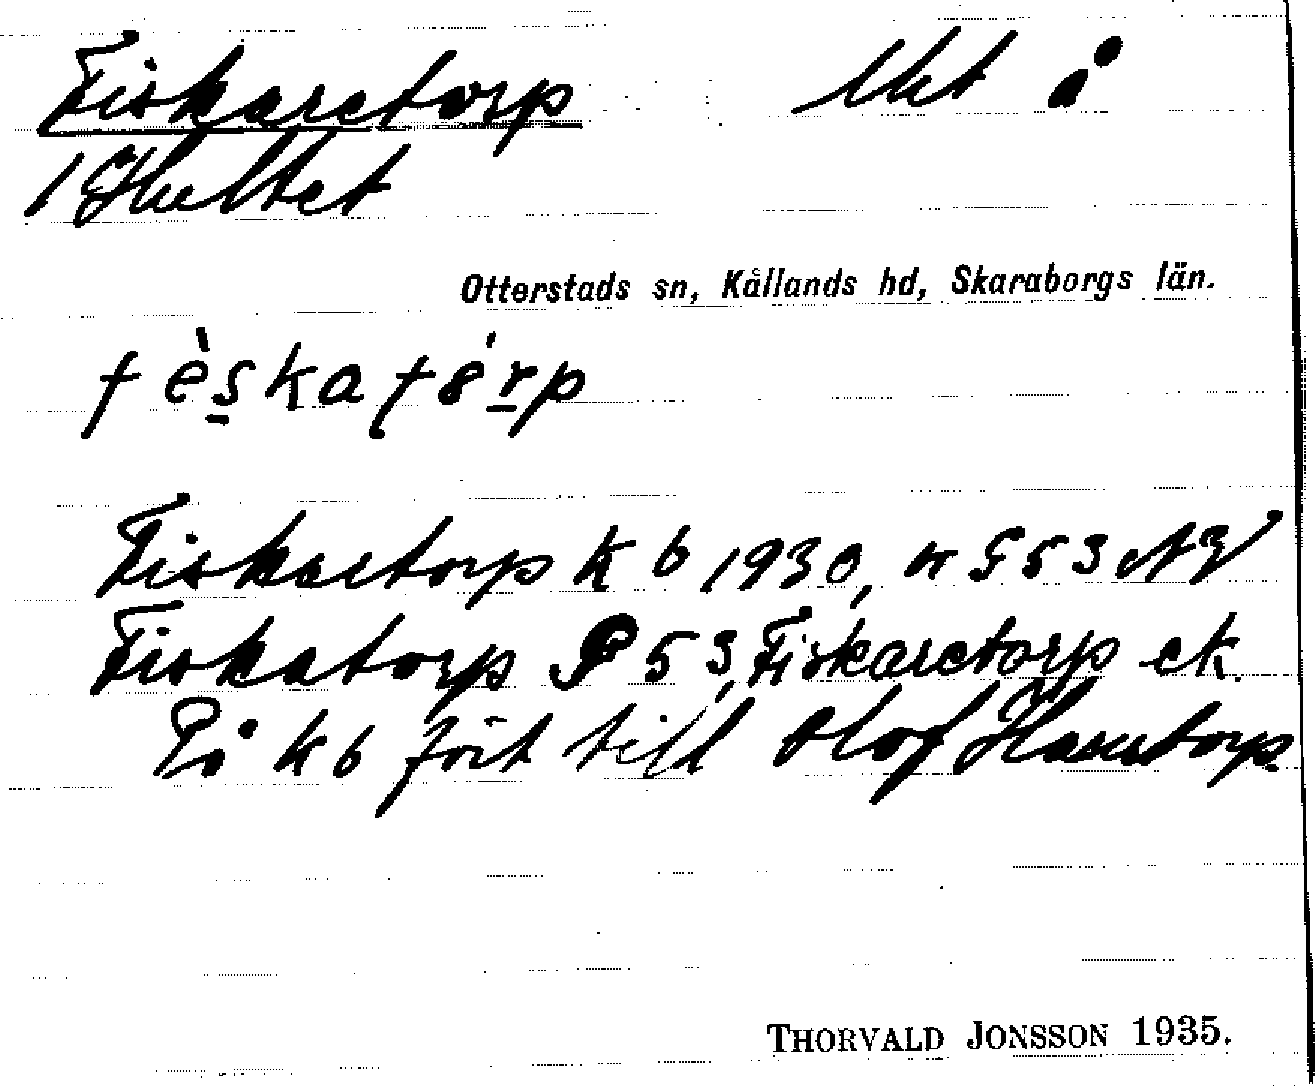 Fiskaretorp lht å
/ Hultet
Otterstads sn, Kållands hd, Skaraborgs län.
fèskatórp
Fiskartorp kb 1930, nr 553 NV
Fiskatorp P 53, Fiskaretorp ek.
På kb fört till Olof Hanstorp
THORVALD JONSSON 1935.